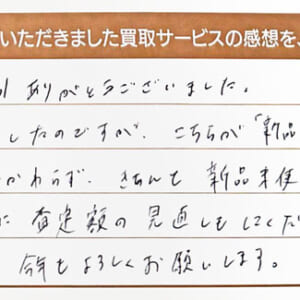 いただきました買取サービスの感想を、
ありがとうございました。
したのですが、こちらが「新品
かわらず、きちんと新品未使
に査定額の見直しもしてくだ
今年もよろしくお願いします。